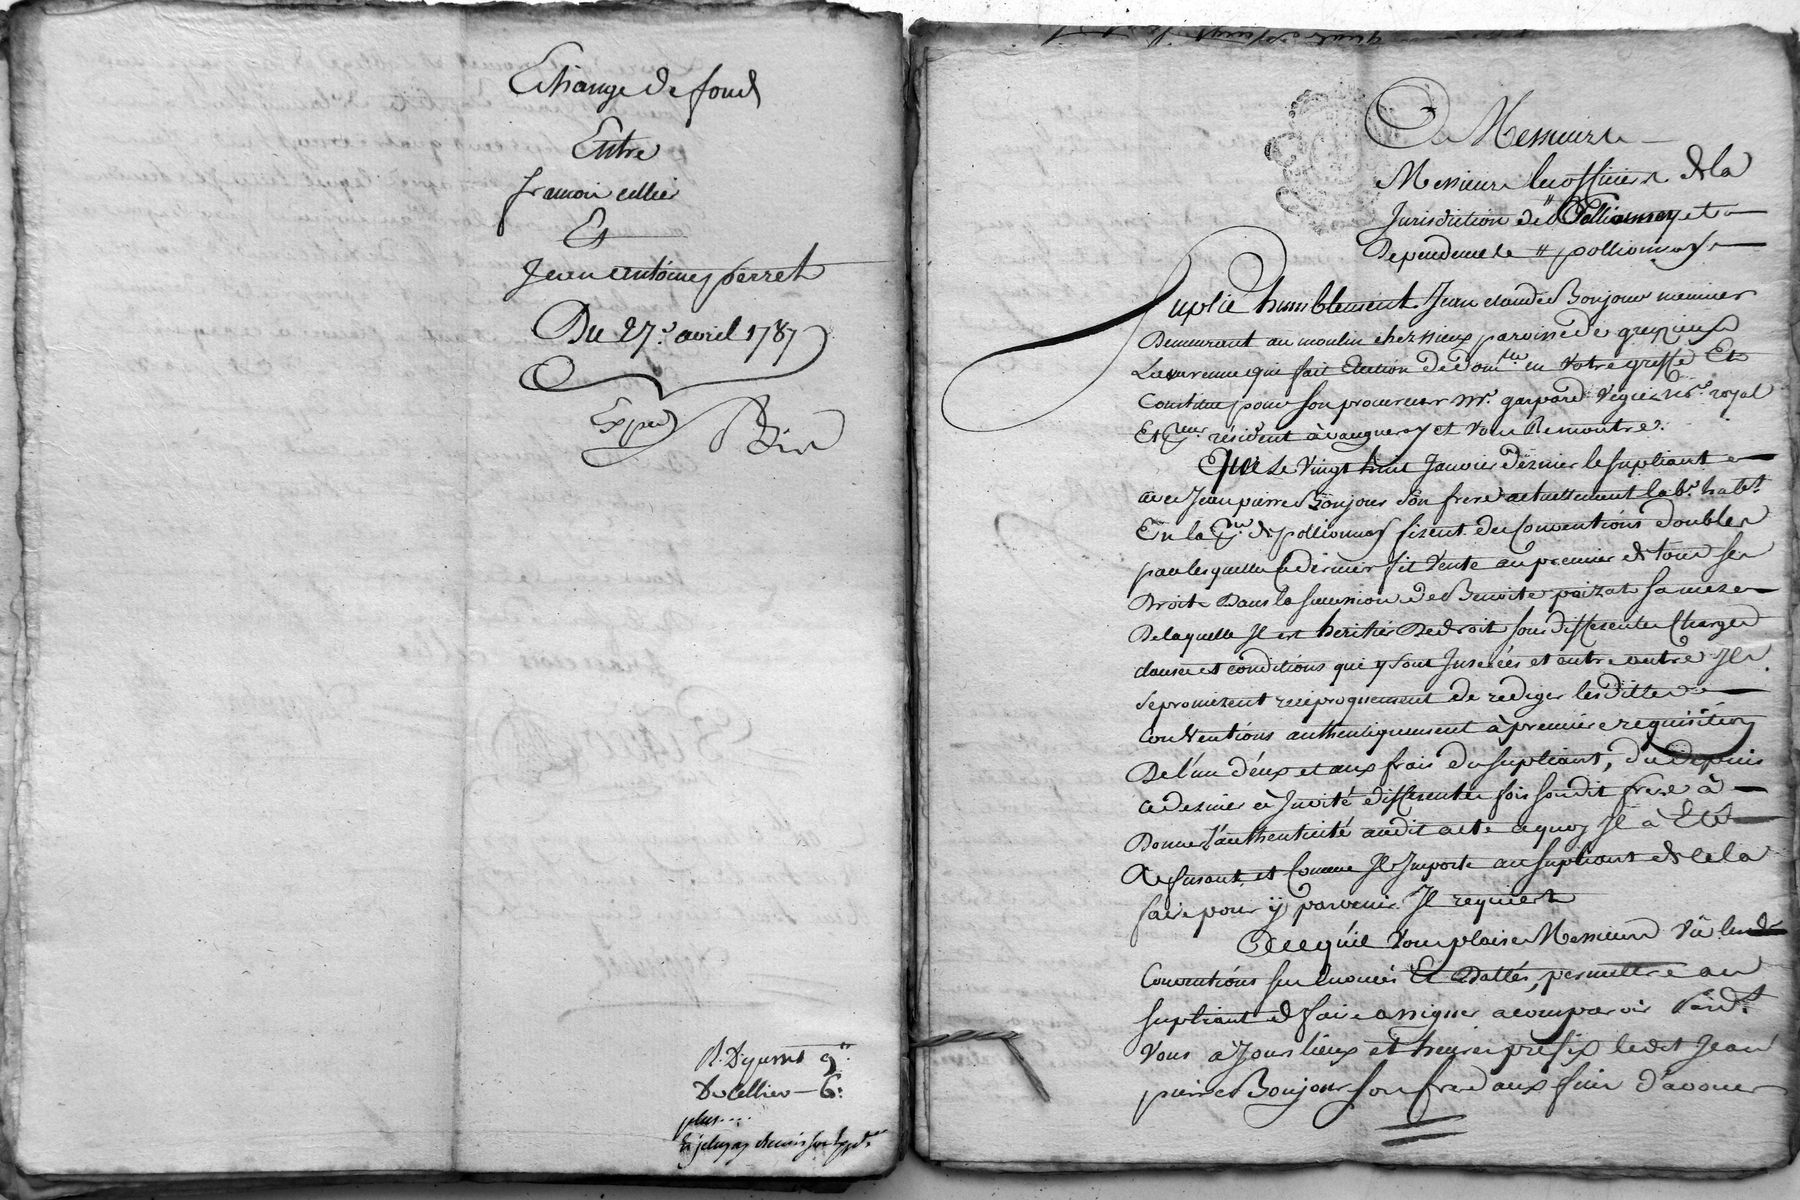 Echange de fond
Entre
francois cellier
Et
Jean antoine perret
Du 27e. avril 1787
Exped
R. D'yurns 9
Du Cellier — 6:
plus....
A Messieurs
Messieurs les officiers de la
Jurisdiction de Pollionnay et
Dependence de " pollionnay
Suplie humblement Jean claude Bonjour meunier
Demeurant au moulin cherzieux paroisse de grezieux
Lavarenne qui fait Election de dom.lle en votre greffe Et
Constitue pour son procureur Mr. gaspard Vegier Nre. royal
Et Pneur résident à vaugneray et vous Remontre.
Que Le vingt huit Janvier dérnier le supliant
avec Jean pierre Bonjour Son frere actuellement labr. habt.
En la Psse de pollionnay firent des Conventions doubles
par lesquelles Ce dernier fit Vente au premier de tous ses
Droits Dans la succession de Benoite poizat sa mere
De laquelle Il est heritier De droit sous differentes Charges
clauses et conditions qui y sont Inserées et entre autre Ils
se promirent reciproquement de rediger lesdittes
Conventions authentiquement à premiere requisition
De l'un d'eux et aux frais du supliant, du depuis
ce dernier à Invité differentes fois son dit frere à
Donner l'authenticité audit acte aquoy Il à Eté
Refusant, et Comme Il Importe au supliant de le la
faire pour y parvenir Il requiert
Ace qu'il Vous plaise Messieurs Vû les d.
Conventions sus Enoncés Et Dattés, permettre au
supliant de faire assigner a comparoir Pard.t
Vous à Jours lieux et heures prefix ledit Jean
pierre Bonjour Son frere aux fins d'avouer